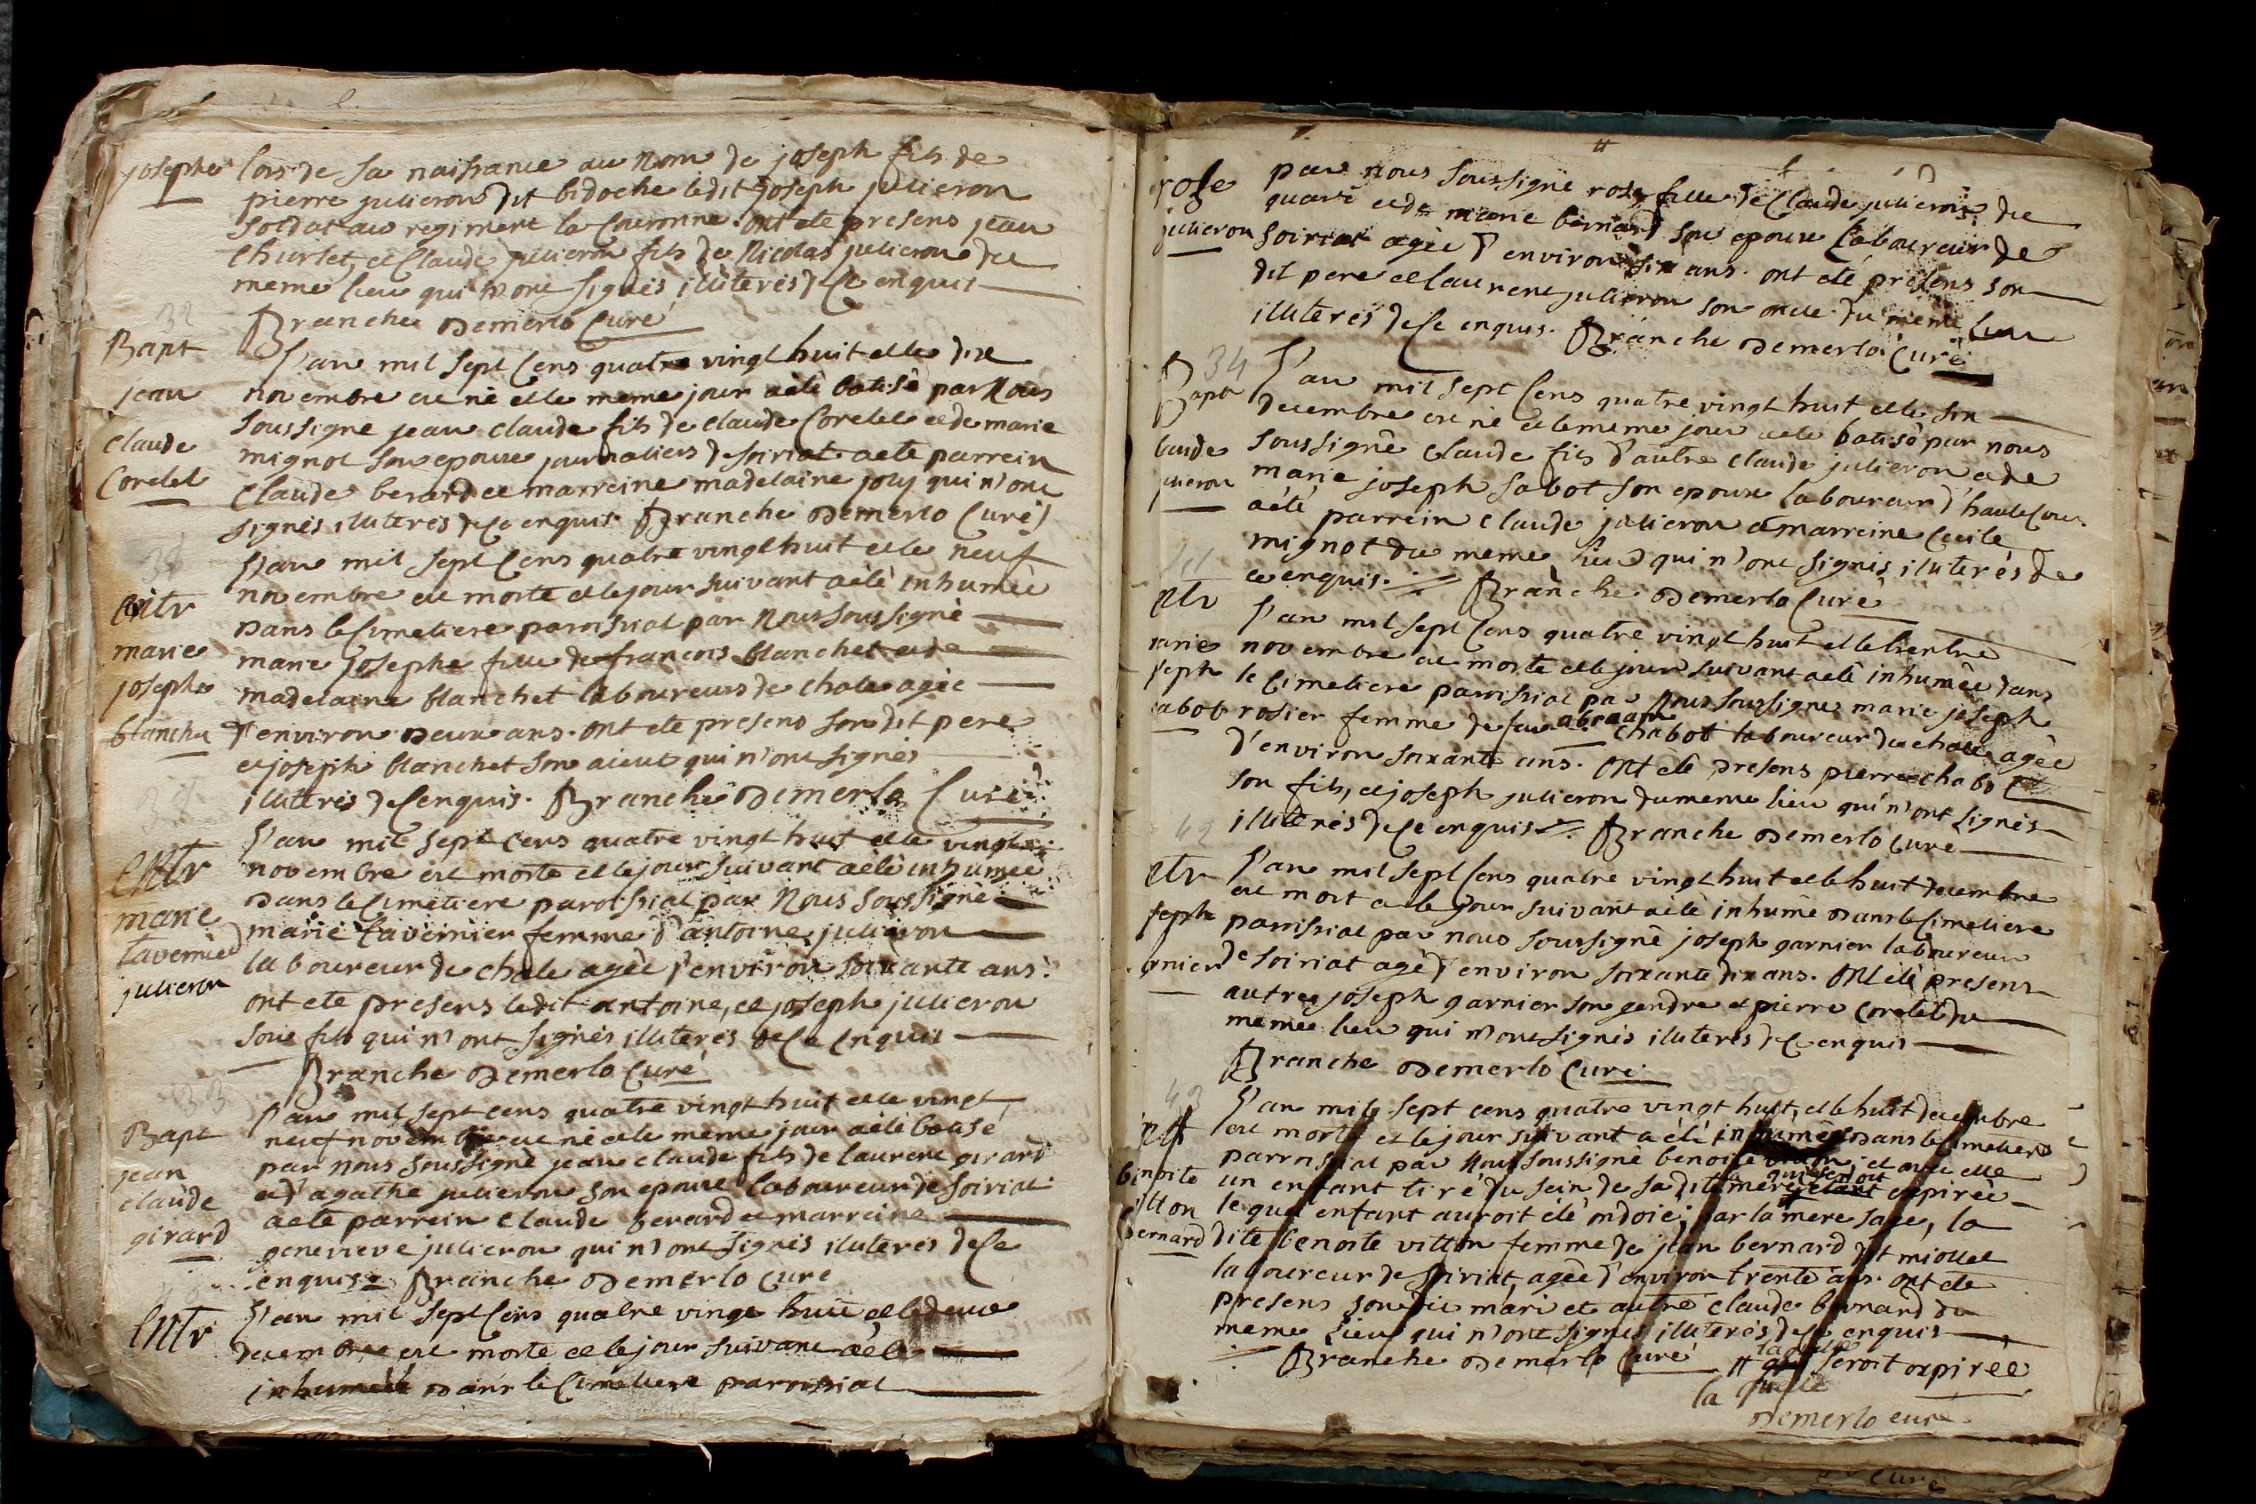 josephe lors de sa naissance au nom de joseph fils de
pierre julieron dit bidoche ledit joseph julieron
soldat au regiment la Couronne. ont ete presens jean
Churlet, et Claude julieron fils de Nicolas julieron du
meme lieu qui n'ont signés illiterés de ce enquis
32
Branche Demerlo Curé
Bapt L'an mil sept cens quatre vingt huit et le dix
jean novembre est né et le meme jour a été batisé par Nous
soussigné jean claude fils de claude Corelet et de marie
claude mignot son epouse journaliers de soiriat a ete parrein
Corelet Claude berard et marreine madelaine joly qui n'ont
signés illiterés de ce enquis Branche Demerlo Curé
L'an mil sept cens quatre vingt huit et le neuf
novembre est morte et le jour suivant a été inhumée
entr Dans le Cimetiere paroissial par Nous soussigné
marie marie josephe fille de francois blanchet et de
josephe madelaine blanchet laboureurs de chale agée
blanchet d'environ Deux ans. ont ete presens son dit pere
et joseph blanchet son aieul qui n'ont signés
illiterés de ce enquis. Branche Demerlo Curé
L'an mil sept cens quatre vingt huit et le vingt
entr novembre est morte et le jour suivant a été inhumée
Dans le Cimetiere paroissial par Nous soussigné
marie marie tavernier femme d'antoine julieron
tavernier laboureur de chale agée d'environ soixante ans.
julieron ont ete presens ledit antoine, et joseph julieron
son fils qui n'ont signés illiterés de ce enquis
Branche Demerlo Curé
33
L'an mil sept cens quatre vingt huit et le vingt
Bapt neuf novembre est né et le meme jour a été batisé
jean par nous soussigné jean claude fils de laurent girard
claude et d'agathe julieron son epouse laboureur de soiriat
girard a ete parrein claude berard et marreine
genevieve julieron qui n'ont signés illiterés de ce
enquis Branche Demerlo curé
entr L'an mil sept cens quatre vingt huit et le deux
decembre est morte et le jour suivant a été
inhumée dans le Cimetiere paroissial
roze par nous soussigné rose fille de Claude julieron du
quaré et de marie bernard son epouse laboureur de
julieron soiriat agée d'environ six ans. ont été presens son
dit pere et laurent julieron son oncle du meme lieu
illiterés de ce enquis. Branche Demerlo curé
34
Bapt L'an mil sept cens quatre vingt huit et le six
decembre est né et le meme jour a ete batisé par nous
laude soussigné claude fils d'autre claude julieron et de
julieron marie joseph sabot son epouse laboureur d'hautecour
a été parrein claude julieron et marreine Cecile
mignot du meme lieu qui n'ont signés illiterés de
41
ce enquis. Branche Demerlo Curé
ntr L'an mil sept cens quatre vingt huit et le trentre
arie novembre est morte et le jour suivant a été inhumée dans
seph le Cimetiere paroissial par Nous soussigné marie joseph
abot rosier femme de feu abraam chabot laboureur de chale agée
d'environ soixante ans. ont été presens pierre chabot
son fils, et joseph julieron du meme lieu qui n'ont signés
42
illiterés de ce enquis. Branche Demerlo curé
ntr L'an mil sept cens quatre vingt huit et le huit decembre
est mort et le jour suivant a été inhumé dans le Cimetiere
seph paroissial par nous soussigné joseph garnier laboureur
arnier de soiriat agé d'environ soixante dix ans. ont été presens
autre joseph garnier son gendre et pierre corelet du
meme lieu qui n'ont signés illiterés de ce enquis
Branche Demerlo Curé
43
L'an mil sept cens quatre vingt huit, et le huit decembre
ntr est morte et le jour suivant a été inhumée dans le cimetiere
parroissial par Nous soussigné benoite vitton et avec elle
benoite un enfant tiré du sein de sa dite mere expirée
itton lequel enfant auroit été ondoié par la mere sage, la
bernard dite benoite vitton femme de jean bernard dit miollet
laboureur de soiriat, agée d'environ trente ans. ont ete
presens son dit mari et autre claude bernard du
meme lieu qui n'ont signés illiterés de ce enquis
Branche Demerlo Curé # laquelle seroit expirée
la quelle
Demerlo curé